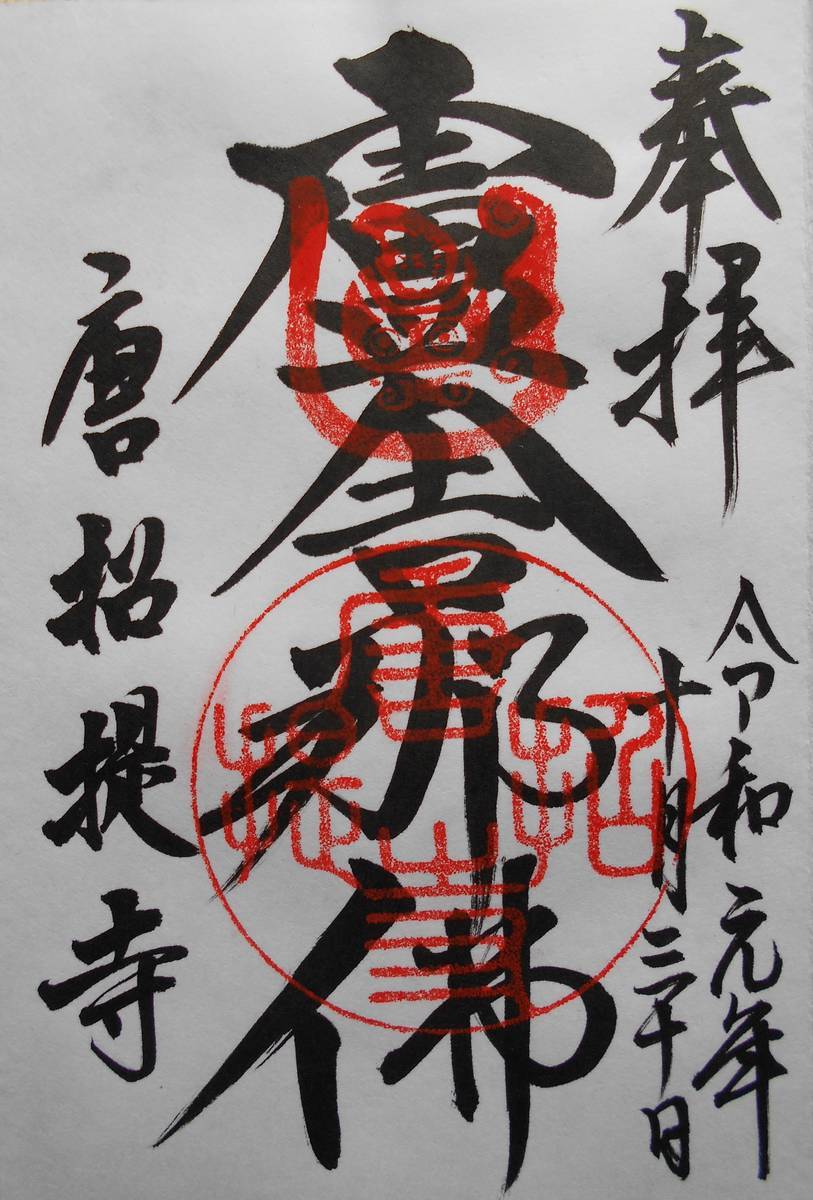 奉拝
令和元年
十月三十日
盧舎那佛
唐招提寺